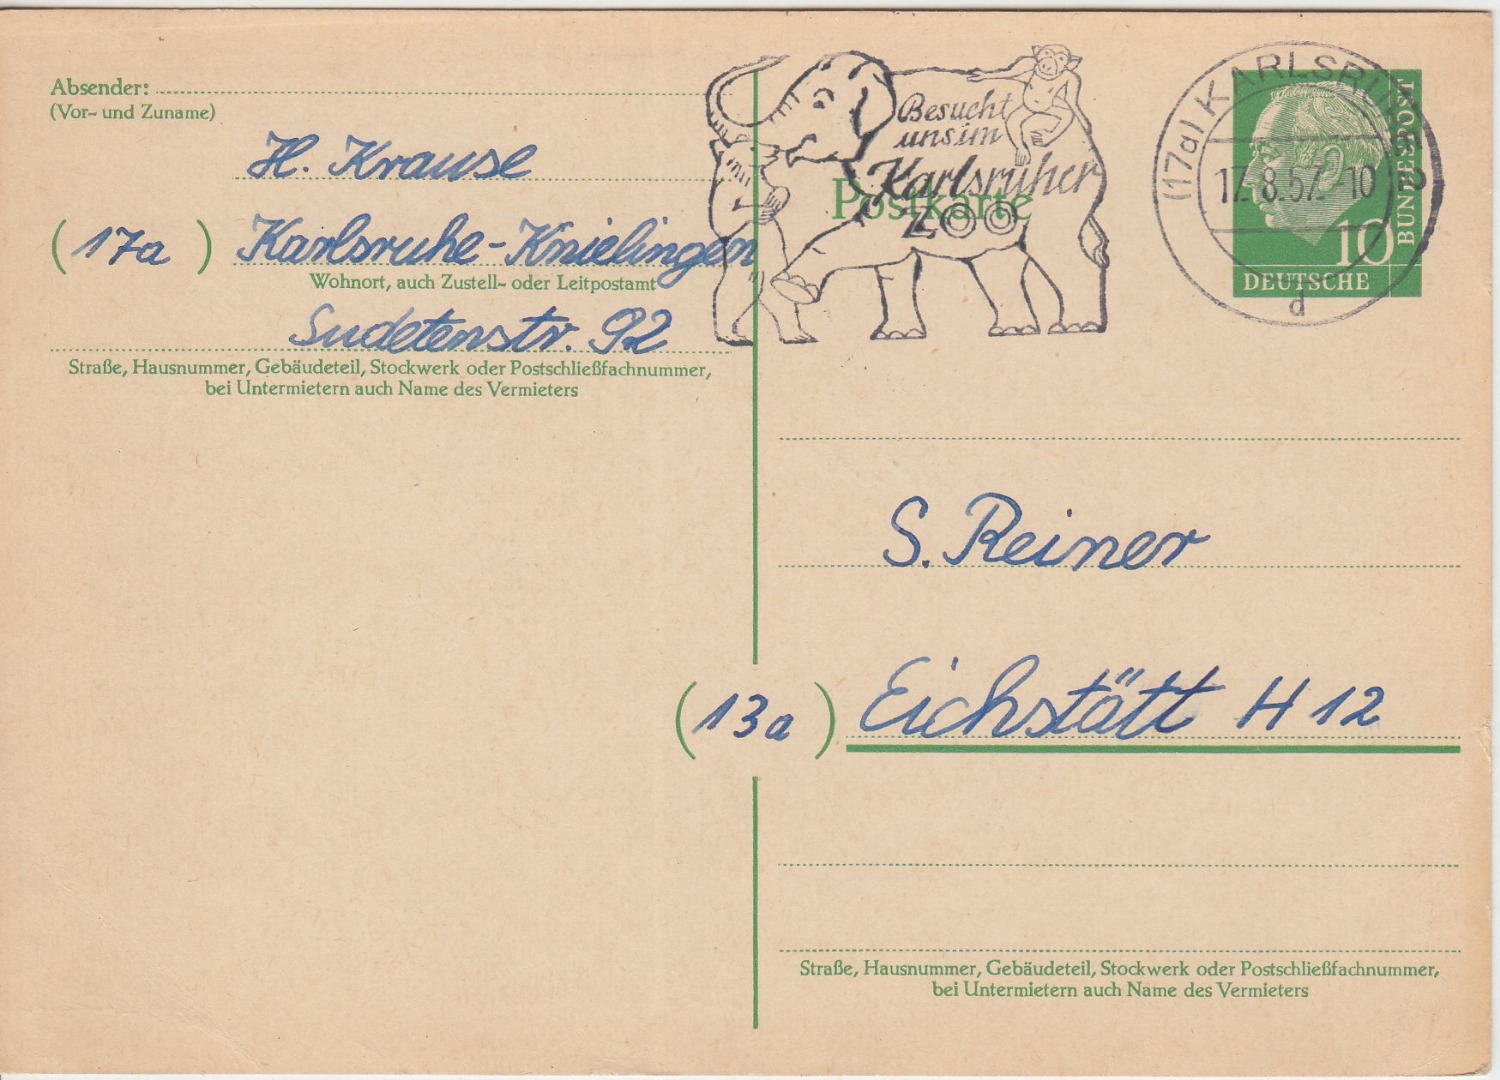 Absender:
(Vor- und Zuname)
H. Krause
(17a) Karlsruhe-Knielingen
Wohnort, auch Zustell- oder Leitpostamt
Sudetenstr. 92
Straße, Hausnummer, Gebäudeteil, Stockwerk oder Postschließfachnummer,
bei Untermietern auch Name des Vermieters
Besucht
uns im
Karlsruher
ZOO
Postkarte
(17a) KARLSRUHE 2
17.8.57.-10
d
10
DEUTSCHE
BUNDESPOST
S. Reiner
(13a) Eichstätt H 12
Straße, Hausnummer, Gebäudeteil, Stockwerk oder Postschließfachnummer,
bei Untermietern auch Name des Vermieters